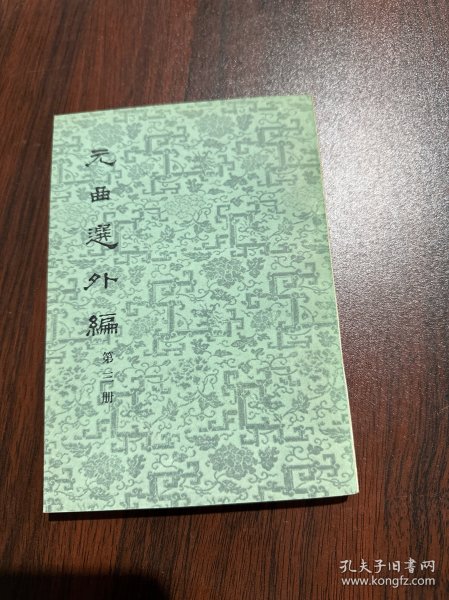 元曲選外編
第三册
孔夫子旧书网
www.kongfz.com